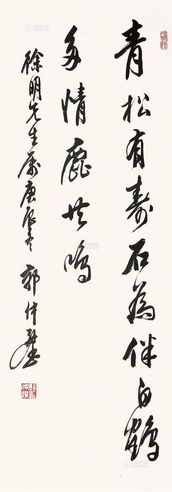 青松有寿石为伴白鹤
多情鹿共鸣
徐明先生属庚辰冬 郭仲